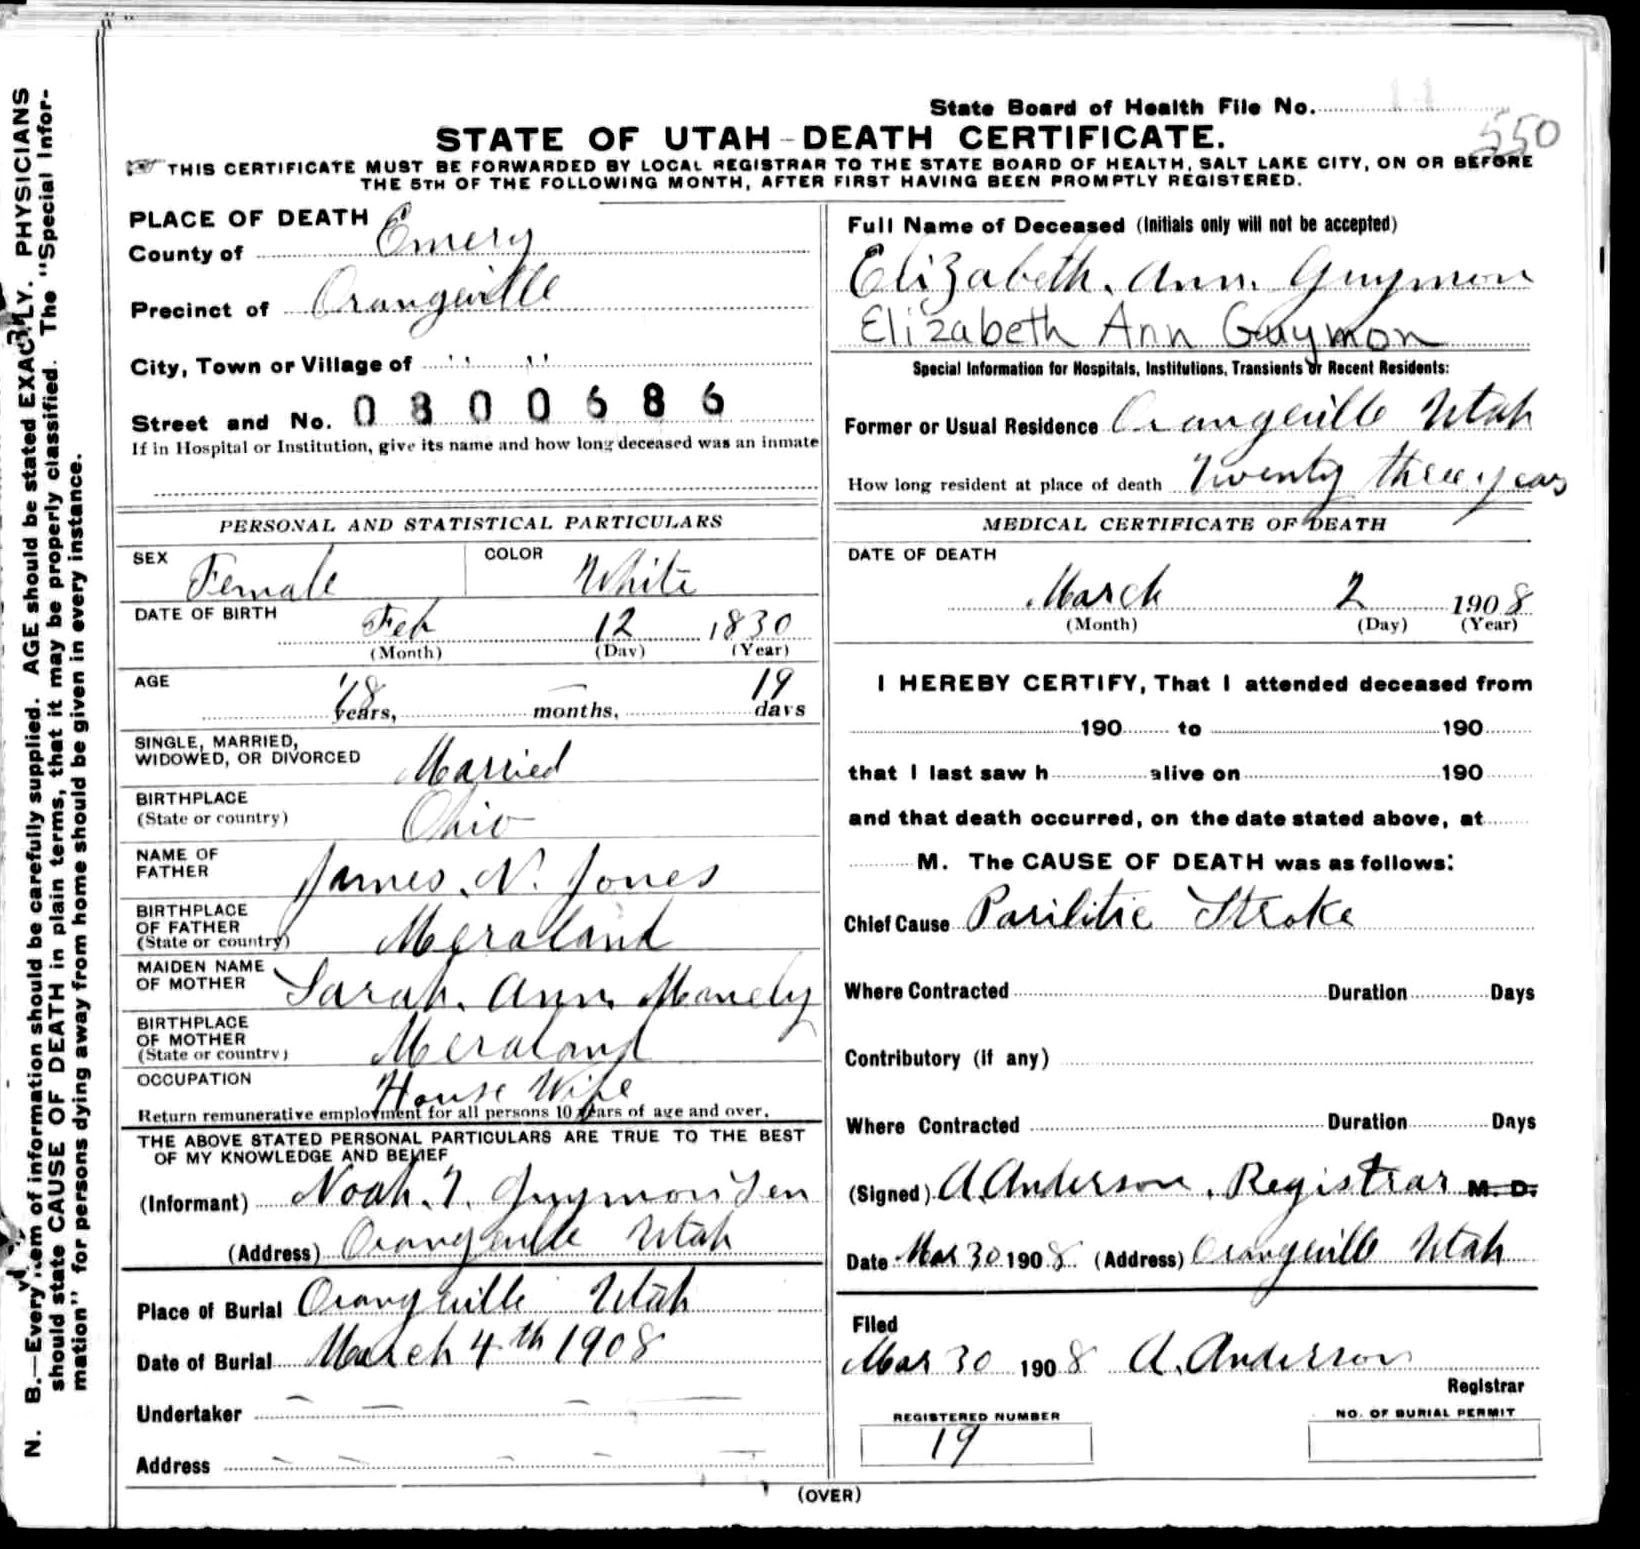 State Board of Health File No.
550
STATE OF UTAH - DEATH CERTIFICATE.
THIS CERTIFICATE MUST BE FORWARDED BY LOCAL REGISTRAR TO THE STATE BOARD OF HEALTH, SALT LAKE CITY, ON OR BEFORE
THE 5TH OF THE FOLLOWING MONTH, AFTER FIRST HAVING BEEN PROMPTLY REGISTERED.
PLACE OF DEATH
County of Emery
Precinct of Orangeville
City, Town or Village of " "
Street and No. 0800686
If in Hospital or Institution, give its name and how long deceased was an inmate
PERSONAL AND STATISTICAL PARTICULARS
SEX Female COLOR White
DATE OF BIRTH Feb 12 1830
(Month) (Day) (Year)
AGE 78 years, — months, 19 days
SINGLE, MARRIED,
WIDOWED, OR DIVORCED Married
BIRTHPLACE
(State or country) Ohio
NAME OF
FATHER James N. Jones
BIRTHPLACE
OF FATHER
(State or country) Meraland
MAIDEN NAME
OF MOTHER Sarah. Ann. Manely
BIRTHPLACE
OF MOTHER
(State or country) Meraland
OCCUPATION House Wife
Return remunerative employment for all persons 10 years of age and over.
THE ABOVE STATED PERSONAL PARTICULARS ARE TRUE TO THE BEST
OF MY KNOWLEDGE AND BELIEF
(Informant) Noah. T. Guymon Sen
(Address) Orangeville Utah
Place of Burial Orangeville Utah
Date of Burial March 4th 1908
Undertaker — — — —
Address — — — — —
Full Name of Deceased (Initials only will not be accepted)
Elizabeth. Ann. Guymon
Elizabeth Ann Guymon
Special Information for Hospitals, Institutions, Transients or Recent Residents:
Former or Usual Residence Orangeville Utah
How long resident at place of death Twenty three years
MEDICAL CERTIFICATE OF DEATH
DATE OF DEATH
March 2 1908
(Month) (Day) (Year)
I HEREBY CERTIFY, That I attended deceased from
190 to 190
that I last saw h alive on 190
and that death occurred, on the date stated above, at
M. The CAUSE OF DEATH was as follows:
Chief Cause Parilitic Stroke
Where Contracted Duration Days
Contributory (if any)
Where Contracted Duration Days
(Signed) A. Anderson. Registrar M. D.
Date Mar 30 1908 (Address) Orangeville Utah
Filed
Mar 30 1908 A. Anderson
Registrar
REGISTERED NUMBER
19
NO. OF BURIAL PERMIT
(OVER)
N. B.—Every item of information should be carefully supplied. AGE should be stated EXACTLY. PHYSICIANS
should state CAUSE OF DEATH in plain terms, that it may be properly classified. The "Special Infor-
mation" for persons dying away from home should be given in every instance.